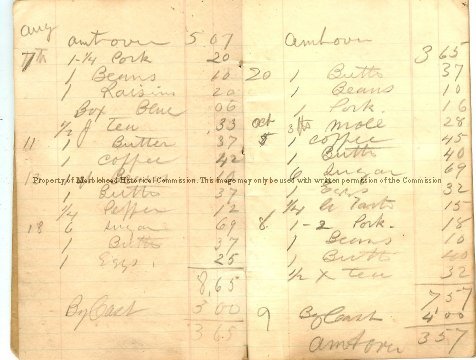 Aug
amt over 5 07
7th 1-1/4 Pork 20
1 Beans 10
1 Raisins 20
Box Blue 06
1/2 J Tea 33
11 1 Butter 37
Coffee 42
Property of Marblehead Historical Commission. This image may only be used with written permission of the Commission.
1 Butter 37
1/4 Pepper 12
18 6 Sugar 69
1 Butter 37
1 Eggs. 25
8,65
By Cash 5 00
3 65
Amt over 3 65
20 1 Butter 37
1 Beans 10
1 Pork. 16
Oct Mole 28
5 1 Coffee 45
1 Butter 40
6 Sugar 69
Eggs 32
1/4 Cr Tart 15
8. 1-2 Pork. 18
1 Beans 10
1 Butter 40
1/2 x Tea 32
7 57
9 By Cash 4 00
Amt over 3 57